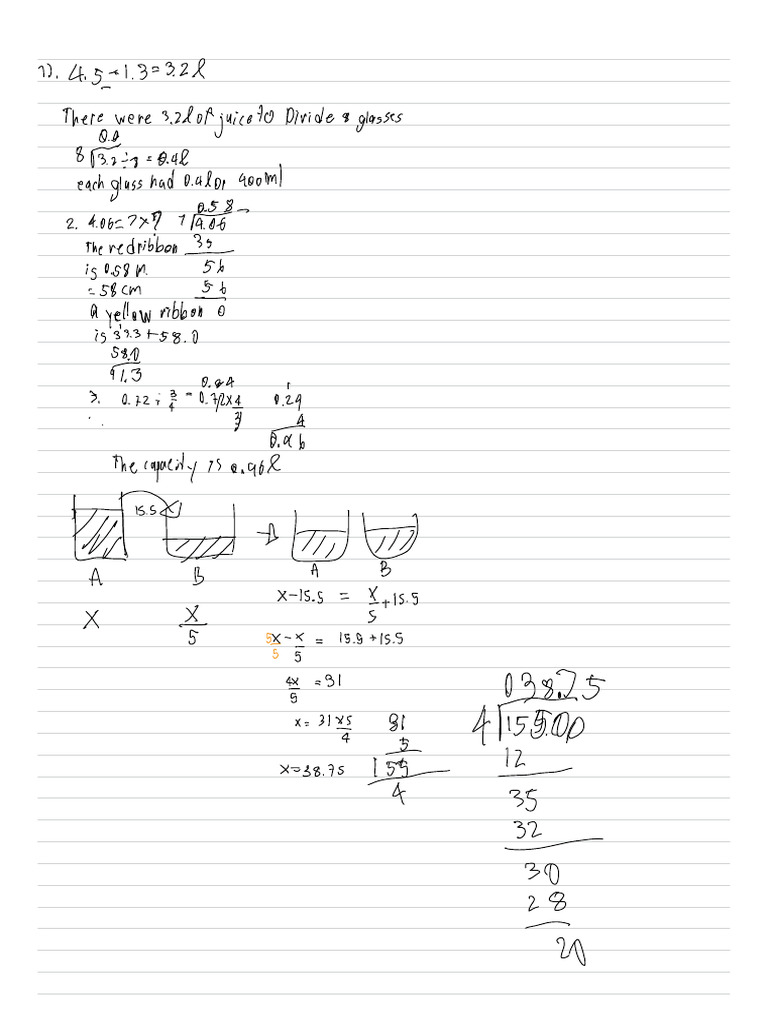 1). 4.5-1.3=3.2l
There were 3.2l of juice to Divide 8 glasses
0.4
8 3.2÷8 = 0.4l
each glass had 0.4l or 400ml
0.58
2. 4.06=7x? 7 4.06
The red ribbon 35
is 0.58 m. 56
=58cm 56
A yellow ribbon 0
is 33.3+58.0
58.0
91.3
0.24
3. 0.72÷3/4 = 0.72x4/3 0.24
4
0.96
The capacity is 0.96l
15.5
A B A B
x x/5
x-15.5 = x/5+15.5
5x/5-x/5 = 15.5+15.5
4x/5 =31
x= 31x5/4 31
5
x=38.75 155
4
038.75
4 155.00
12
35
32
30
28
20